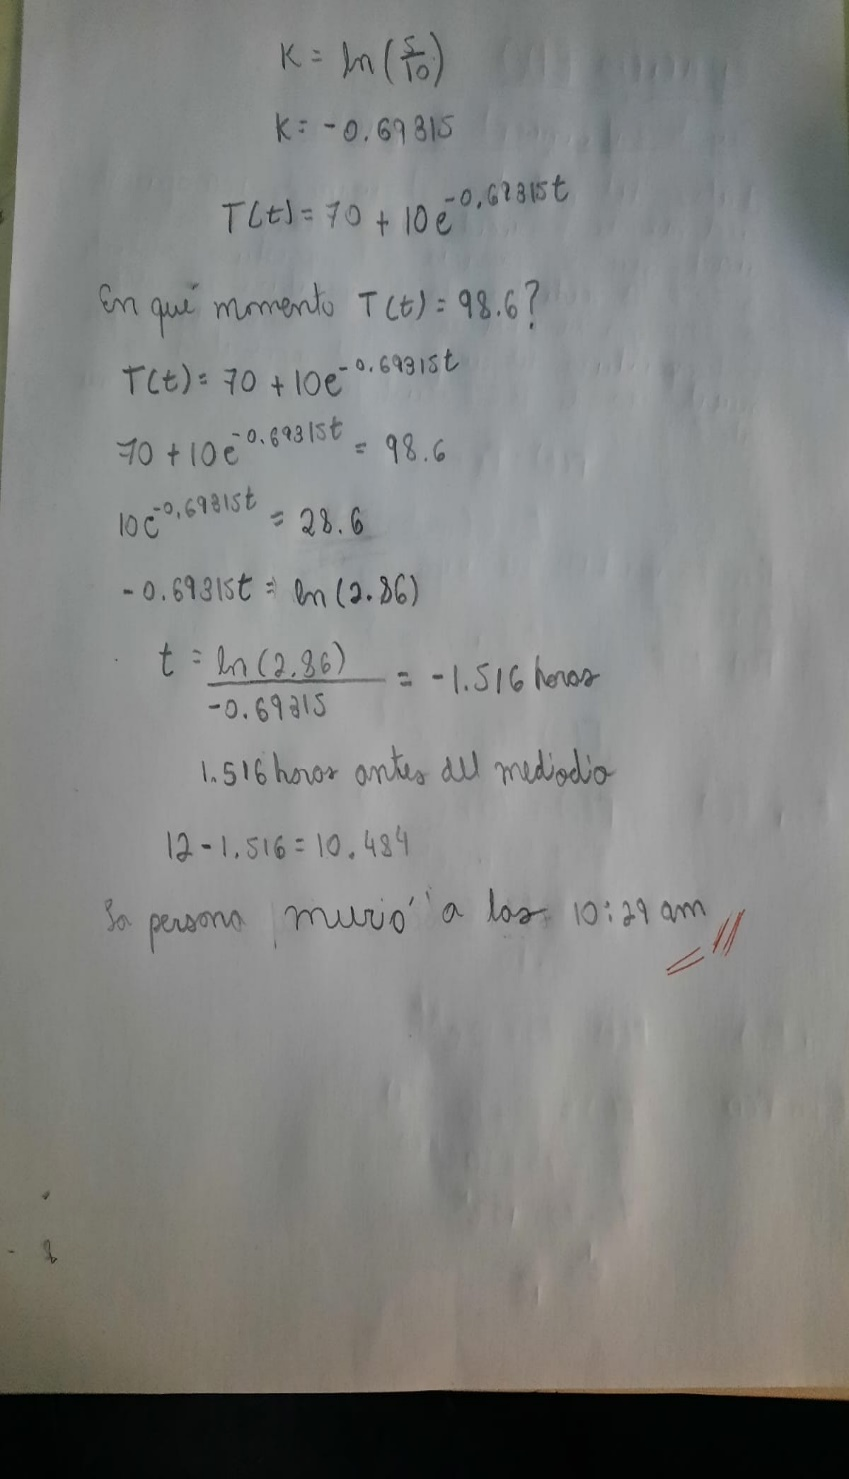 K = ln(5/10)
K = -0.69315
T(t) = 70 + 10e^-0.69315t
En qué momento T(t) = 98.6?
T(t) = 70 + 10e^-0.69315t
70 + 10e^-0.69315t = 98.6
10e^-0,69315t = 28.6
-0.69315t = ln(2.86)
t = ln(2.86)/-0.69315 = -1.516 horas
1.516 horas antes del mediodia
12 - 1.516 = 10.484
La persona murió a las 10:29 am